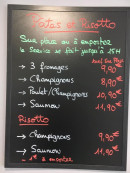 Pates et Risotto
Sur place ou à emporter
le Service se fait jusqu'à 15H
→ 3 fromages 9,90€
→ Champignons 8,90€
→ Poulet/Champignons 10,90€
→ Saumon 11,90€
Risotto
→ Champignons 9,90€
→ Saumon 11,90€
- 1€ à emporter